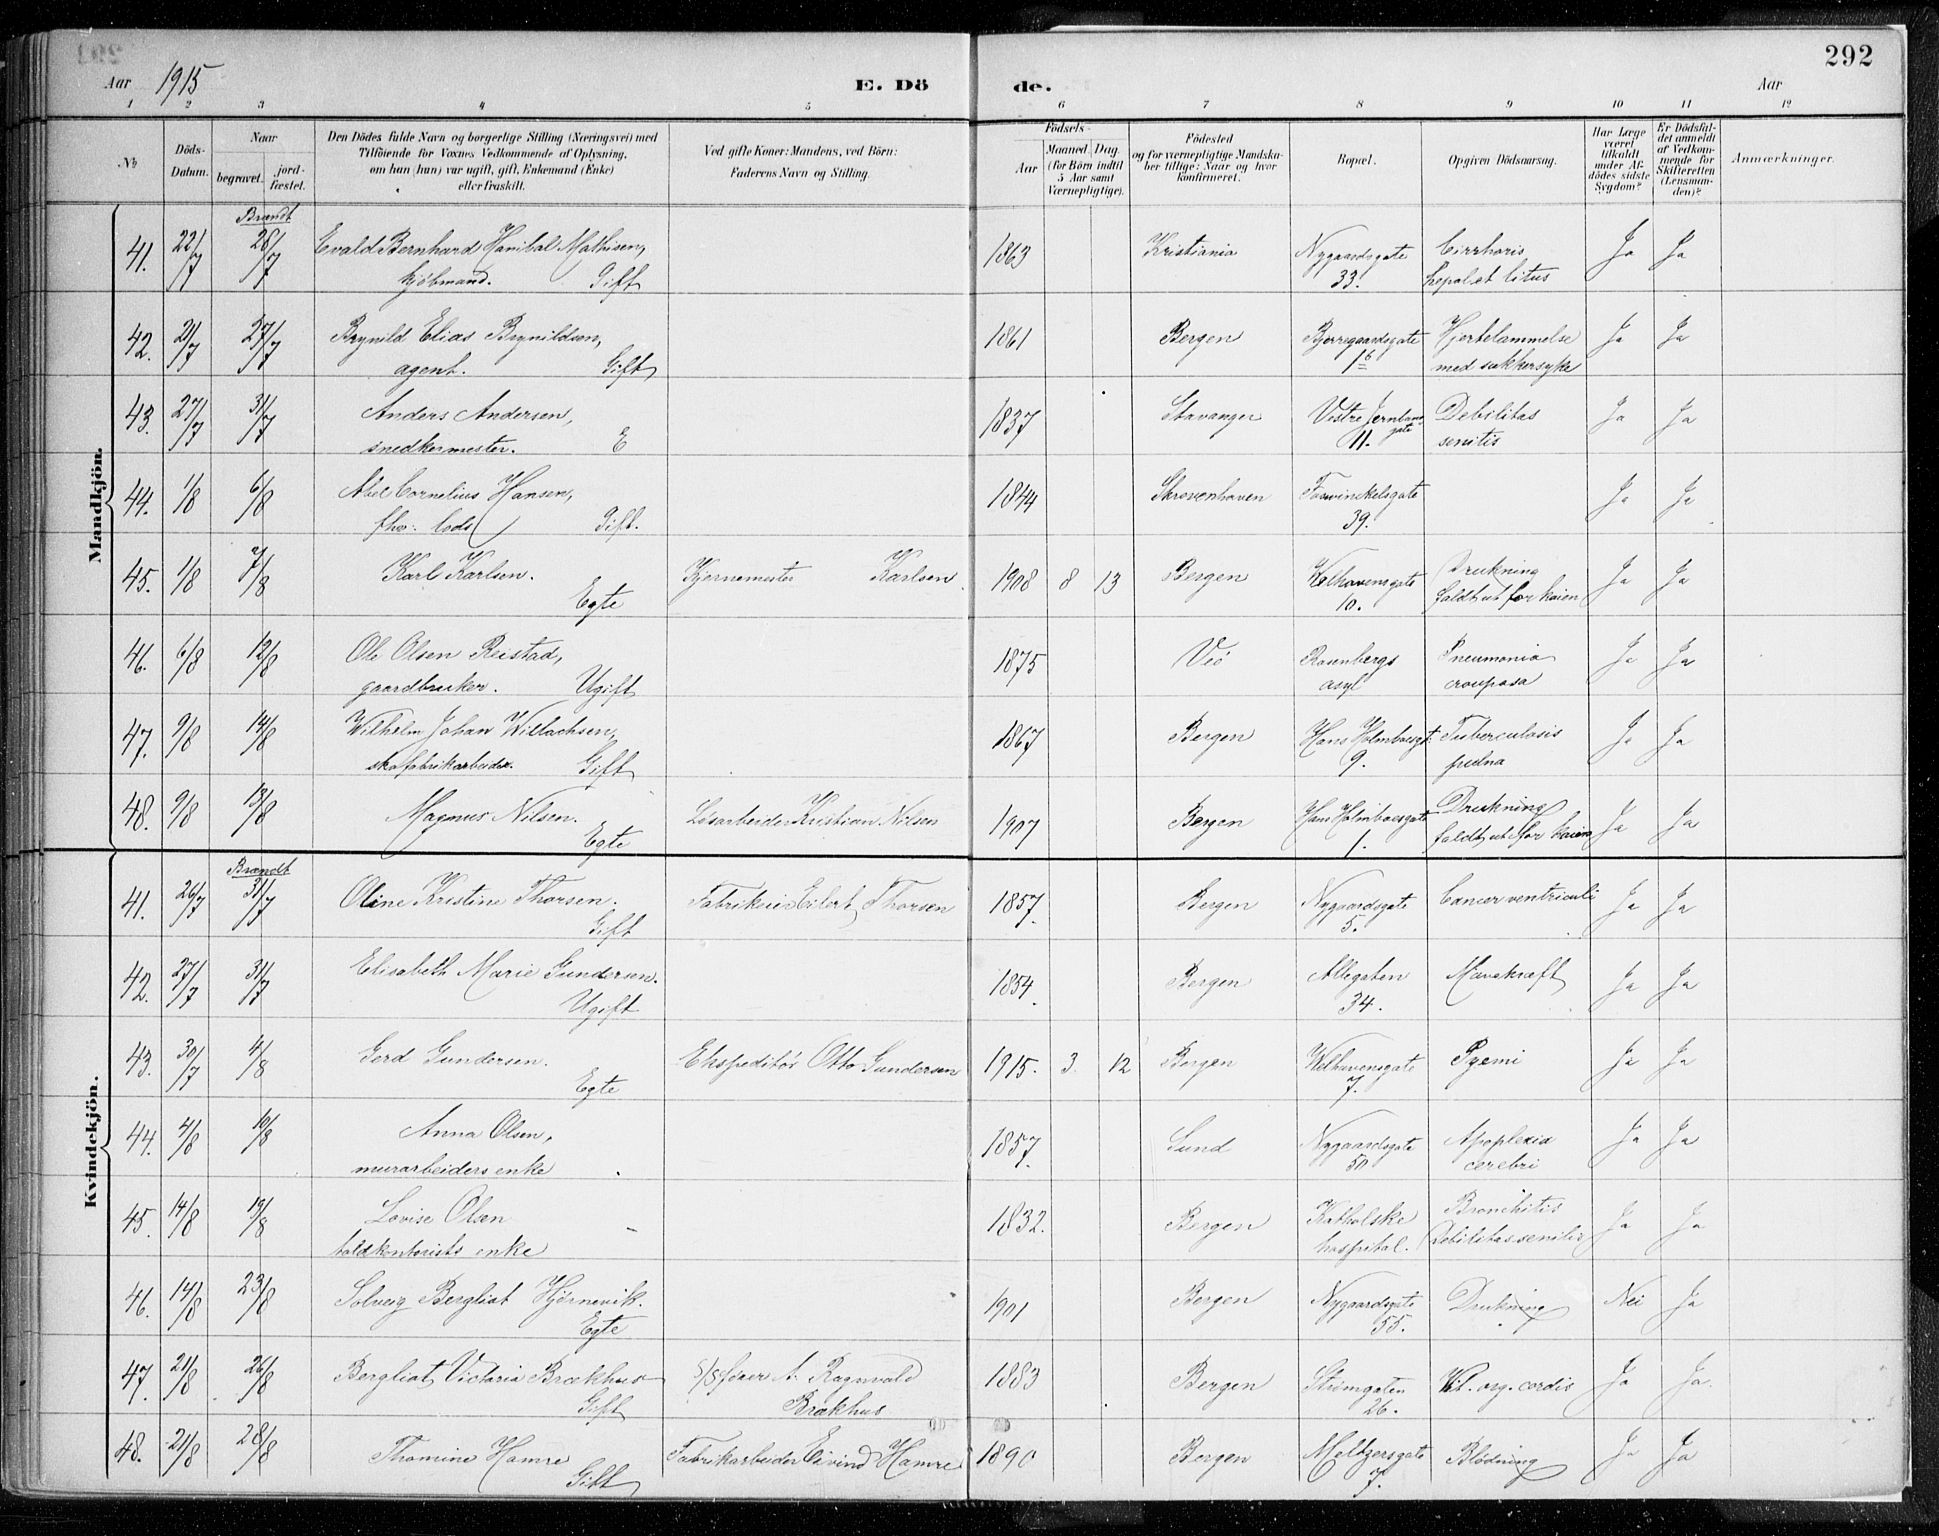 292
Aar 1915 E. Dö de. Aar
1 2 3 4 5 6 7 8 9 10 11 12
No
Döds-Datum.
Naar
begravet.
jordfæstet.
Den Dödes fulde Navn og borgerlige Stilling (Næringsvei) med
Tilföiende for Voxnes Vedkommende af Oplysning,
om han (hun) var ugift, gift, Enkemand (Enke)
eller fraskilt.
Ved gifte Koner: Mandens, ved Börn:
Faderens Navn og Stilling.
Födsels-
Aar
Maaned. Dag.
(for Börn indtil
5 Aar samt
Værnepligtige).
Födested
og for værnepligtige Mandska-
ber tillige: Naar og hvor
konfirmeret.
Bopæl.
Opgiven Dödsaarsag.
Har Læge
været
tilkaldt
under Af-
dödes sidste
Sygdom?
Er Dödsfal-
det anmeldt
af Vedkom-
mende for
Skifteretten
(Lensman-
den)?
Anmærkninger.
Mandkjön.
Brændt
41. 22/7 28/7 Evald Bernhard Hanibal Mathisen, 1863 Kristiania Nygaardsgate Cirrhoris Ja Ja
kjöbmand. Gift 33. hepal et litus
42. 21/7 27/7 Brynild Elias Brynildsen, 1861 Bergen Bjerregaardsgate Hjertelammelse Ja Ja
agent. Gift 1b med sukkersyke
43. 27/7 31/7 Anders Andersen, 1837 Stavanger Vestre Jernbane Debilitas Ja Ja
snedkermester. E gate 11. senilis
44. 1/8 6/8 Abel Cornelius Hansen, 1844 Skrovenhaven Fosswinckelsgate Ja Ja
fhv: lods Gift. 39.
45. 1/8 7/8 Karl Karlsen. Kjernemester Karlsen 1908 8 13 Bergen Welhavensgate Drukning Ja Ja
Egte 10. faldt ut for kaien
46. 6/8 12/8 Ole Olsen Reistad, 1875 Veö Rosenbergs Pneumonia Ja Ja
gaardbruker. Ugift asyl crouposa
47. 9/8 14/8 Wilhelm Johan Willachsen, 1867 Bergen Hans Holmboesgt. Tuberculosis Ja Ja
skofabrikarbeider. Gift 9. pulna
48. 9/8 13/8 Magnus Nilsen. Lösarbeider Kristian Nilsen 1907 Bergen Hans Holmboesgate Drukning Ja Ja
Egte 1. faldt ut for kaien
Kvindekjön.
Brændt
41. 26/7 31/7 Oline Kristine Thorsen. Fabrikeier Eilert Thorsen 1857. Bergen Nygaardsgate Cancer ventriculi Ja Ja
Gift 5.
42. 27/7 31/7 Elisabeth Marie Gundersen. 1854. Bergen Allegaten Mavekræft Ja Ja
Ugift 34.
43. 30/7 4/8 Gerd Gundersen. Ekspeditör Otto Gundersen 1915. 3. 12 Bergen Welhavensgate Pyemi Ja Ja
Egte 7.
44. 4/8 10/8 Anna Olsen, 1857. Sund Nygaardsgate Apoplexia Ja Ja
murarbeiders enke 50 cerebri
45. 14/8 19/8 Lovise Olsen 1832. Bergen Katholske Bronchitis Ja Ja
toldkontorists enke hospital. Debilitas senilis
46. 14/8 23/8 Solveig Bergliot Hjörnevik. 1901 Bergen Nygaardsgate Drukning Nei Ja
Egte 55.
47. 21/8 26/8 Bergliot Victoria Brækhus S/Sförer A. Ragnvald 1883 Bergen Strömgaten Vit. org. cordis Ja Ja.
Gift Brækhus 26.
48. 21/8 28/8 Thomine Hamre Fabrikarbeider Eivind Hamre 1890 Bergen Meltzersgate Blödning Ja Ja
Gift 7.